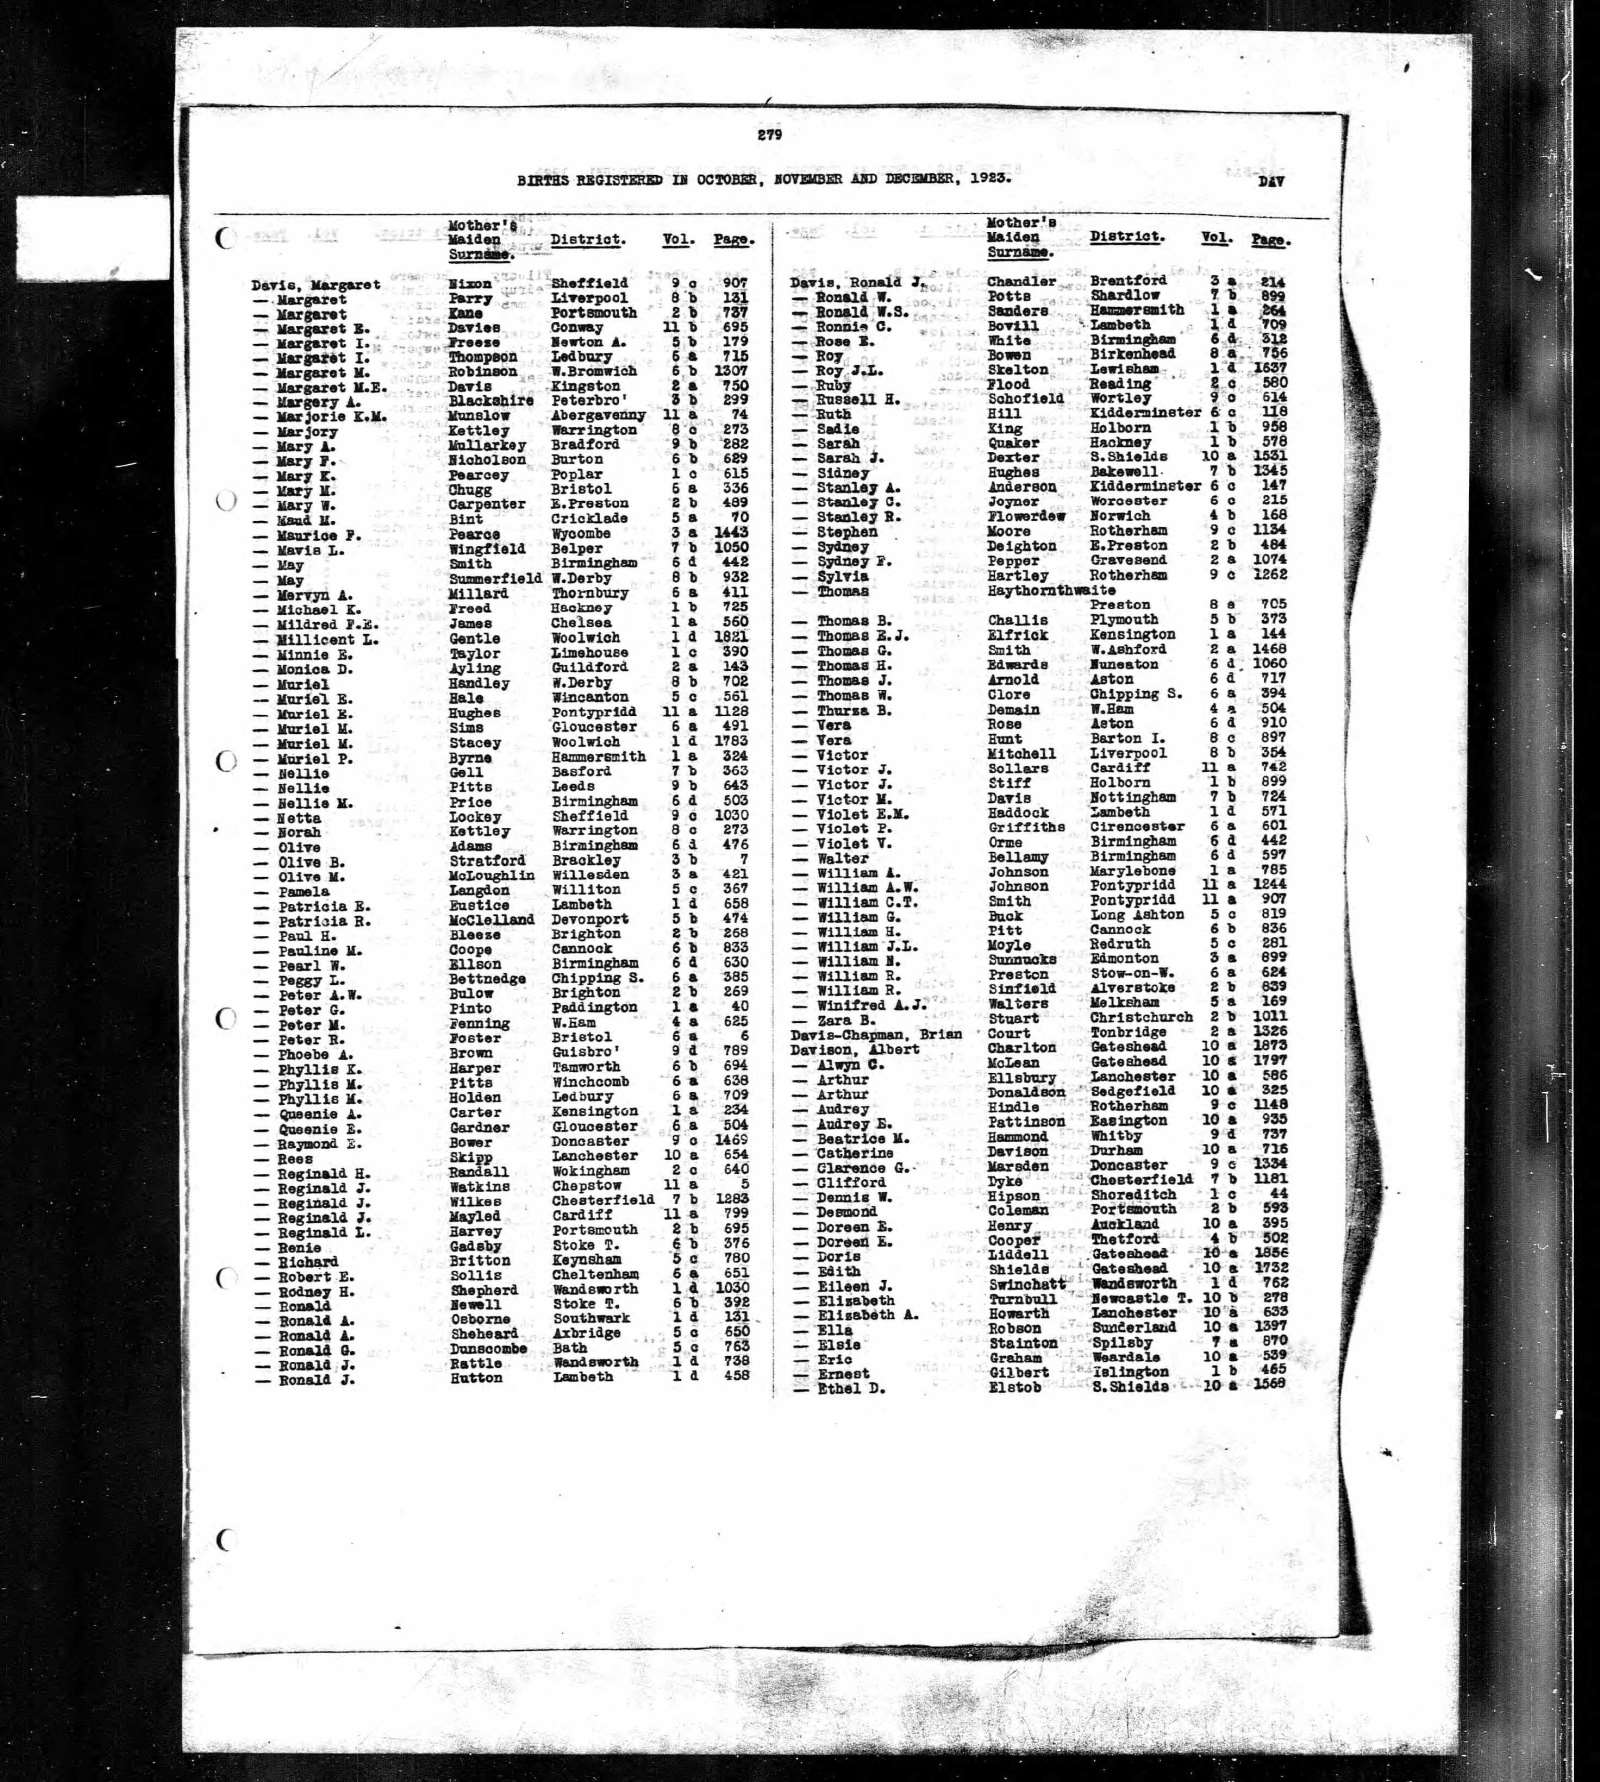 279
BIRTHS REGISTERED IN OCTOBER, NOVEMBER AND DECEMBER, 1923.
DAV
Mother's Maiden Surname. District. Vol. Page.
Davis, Margaret Nixon Sheffield 9 c 907
— Margaret Parry Liverpool 8 b 131
— Margaret Kane Portsmouth 2 b 737
— Margaret E. Davies Conway 11 b 695
— Margaret I. Freese Newton A. 5 b 179
— Margaret I. Thompson Ledbury 6 a 715
— Margaret M. Robinson W.Bromwich 6 b 1307
— Margaret M.E. Davis Kingston 2 a 750
— Margery A. Blackshire Peterbro' 3 b 299
— Marjorie K.M. Munslow Abergavenny 11 a 74
— Marjory Kettley Warrington 8 c 273
— Mary A. Mullarkey Bradford 9 b 282
— Mary F. Nicholson Burton 6 b 629
— Mary K. Pearcey Poplar 1 c 615
— Mary M. Chugg Bristol 6 a 336
— Mary W. Carpenter E.Preston 2 b 489
— Maud M. Bint Cricklade 5 a 70
— Maurice F. Pearce Wycombe 3 a 1443
— Mavis L. Wingfield Belper 7 b 1050
— May Smith Birmingham 6 d 442
— May Summerfield W.Derby 8 b 932
— Mervyn A. Millard Thornbury 6 a 411
— Michael K. Freed Hackney 1 b 725
— Mildred F.E. James Chelsea 1 a 560
— Millicent L. Gentle Woolwich 1 d 1821
— Minnie E. Taylor Limehouse 1 c 390
— Monica D. Ayling Guildford 2 a 143
— Muriel Handley W.Derby 8 b 702
— Muriel E. Hale Wincanton 5 c 561
— Muriel E. Hughes Pontypridd 11 a 1128
— Muriel M. Sims Gloucester 6 a 491
— Muriel M. Stacey Woolwich 1 d 1783
— Muriel P. Byrne Hammersmith 1 a 324
— Nellie Gell Basford 7 b 363
— Nellie Pitts Leeds 9 b 643
— Nellie M. Price Birmingham 6 d 503
— Netta Lockey Sheffield 9 c 1030
— Norah Kettley Warrington 8 c 273
— Olive Adams Birmingham 6 d 476
— Olive B. Stratford Brackley 3 b 7
— Olive M. McLoughlin Willesden 3 a 421
— Pamela Langdon Williton 5 c 367
— Patricia E. Eustice Lambeth 1 d 658
— Patricia R. McClelland Devonport 5 b 474
— Paul H. Bleeze Brighton 2 b 268
— Pauline M. Coope Cannock 6 b 833
— Pearl W. Ellson Birmingham 6 d 630
— Peggy L. Bettnedge Chipping S. 6 a 385
— Peter A.W. Bulow Brighton 2 b 269
— Peter G. Pinto Paddington 1 a 40
— Peter M. Fenning W.Ham 4 a 625
— Peter R. Foster Bristol 6 a 6
— Phoebe A. Brown Guisbro' 9 d 789
— Phyllis K. Harper Tamworth 6 b 694
— Phyllis M. Pitts Winchcomb 6 a 638
— Phyllis M. Holden Ledbury 6 a 709
— Queenie A. Carter Kensington 1 a 234
— Queenie E. Gardner Gloucester 6 a 504
— Raymond E. Bower Doncaster 9 c 1469
— Rees Skipp Lanchester 10 a 654
— Reginald H. Randall Wokingham 2 c 640
— Reginald J. Watkins Chepstow 11 a 5
— Reginald J. Wilkes Chesterfield 7 b 1283
— Reginald J. Mayled Cardiff 11 a 799
— Reginald L. Harvey Portsmouth 2 b 695
— Renie Gadsby Stoke T. 6 b 376
— Richard Britton Keynsham 5 c 780
— Robert E. Sollis Cheltenham 6 a 651
— Rodney H. Shepherd Wandsworth 1 d 1030
— Ronald Newell Stoke T. 6 b 392
— Ronald A. Osborne Southwark 1 d 131
— Ronald A. Sheheard Axbridge 5 c 650
— Ronald G. Dunscombe Bath 5 c 763
— Ronald J. Rattle Wandsworth 1 d 738
— Ronald J. Hutton Lambeth 1 d 458
Mother's Maiden Surname. District. Vol. Page.
Davis, Ronald J. Chandler Brentford 3 a 214
— Ronald W. Potts Shardlow 7 b 899
— Ronald W.S. Sanders Hammersmith 1 a 264
— Ronnie C. Bovill Lambeth 1 d 709
— Rose E. White Birmingham 6 d 312
— Roy Bowen Birkenhead 8 a 756
— Roy J.L. Skelton Lewisham 1 d 1637
— Ruby Flood Reading 2 c 580
— Russell H. Schofield Wortley 9 c 614
— Ruth Hill Kidderminster 6 c 118
— Sadie King Holborn 1 b 958
— Sarah Quaker Hackney 1 b 578
— Sarah J. Dexter S.Shields 10 a 1531
— Sidney Hughes Bakewell 7 b 1345
— Stanley A. Anderson Kidderminster 6 c 147
— Stanley C. Joyner Worcester 6 c 215
— Stanley R. Flowerdew Norwich 4 b 168
— Stephen Moore Rotherham 9 c 1134
— Sydney Deighton E.Preston 2 b 484
— Sydney F. Pepper Gravesend 2 a 1074
— Sylvia Hartley Rotherham 9 c 1262
— Thomas Haythornthwaite
Preston 8 e 705
— Thomas B. Challis Plymouth 5 b 373
— Thomas E.J. Elfrick Kensington 1 a 144
— Thomas G. Smith W.Ashford 2 a 1468
— Thomas H. Edwards Nuneaton 6 d 1060
— Thomas J. Arnold Aston 6 d 717
— Thomas W. Clore Chipping S. 6 a 394
— Thurza B. Demain W.Ham 4 a 504
— Vera Rose Aston 6 d 910
— Vera Hunt Barton I. 8 c 897
— Victor Mitchell Liverpool 8 b 354
— Victor J. Sollars Cardiff 11 a 742
— Victor J. Stiff Holborn 1 b 899
— Victor M. Davis Nottingham 7 b 724
— Violet E.M. Haddock Lambeth 1 d 571
— Violet P. Griffiths Cirencester 6 a 601
— Violet V. Orme Birmingham 6 d 442
— Walter Bellamy Birmingham 6 d 597
— William A. Johnson Marylebone 1 a 785
— William A.W. Johnson Pontypridd 11 a 1244
— William C.T. Smith Pontypridd 11 a 907
— William G. Buck Long Ashton 5 c 819
— William H. Pitt Cannock 6 b 836
— William J.L. Moyle Redruth 5 c 281
— William N. Sunnucks Edmonton 3 a 899
— William R. Preston Stow-on-W. 6 a 624
— William R. Sinfield Alverstoke 2 b 839
— Winifred A.J. Walters Melksham 5 a 169
— Zara B. Stuart Christchurch 2 b 1011
Davis-Chapman, Brian Court Tonbridge 2 a 1326
Davison, Albert Charlton Gateshead 10 a 1873
— Alwyn C. McLean Gateshead 10 a 1797
— Arthur Ellsbury Lanchester 10 a 586
— Arthur Donaldson Sedgefield 10 a 325
— Audrey Hindle Rotherham 9 c 1148
— Audrey E. Pattinson Easington 10 a 935
— Beatrice M. Hammond Whitby 9 d 737
— Catherine Davison Durham 10 a 716
— Clarence G. Marsden Doncaster 9 c 1334
— Clifford Dyke Chesterfield 7 b 1181
— Dennis W. Hipson Shoreditch 1 c 44
— Desmond Coleman Portsmouth 2 b 593
— Doreen E. Henry Auckland 10 a 395
— Doreen E. Cooper Thetford 4 b 502
— Doris Liddell Gateshead 10 a 1856
— Edith Shields Gateshead 10 a 1732
— Eileen J. Swinchatt Wandsworth 1 d 762
— Elizabeth Turnbull Newcastle T. 10 b 278
— Elizabeth A. Howarth Lanchester 10 a 633
— Ella Robson Sunderland 10 a 1397
— Elsie Stainton Spilsby 7 a 870
— Eric Graham Weardale 10 a 539
— Ernest Gilbert Islington 1 b 465
— Ethel D. Elstob S.Shields 10 a 1568